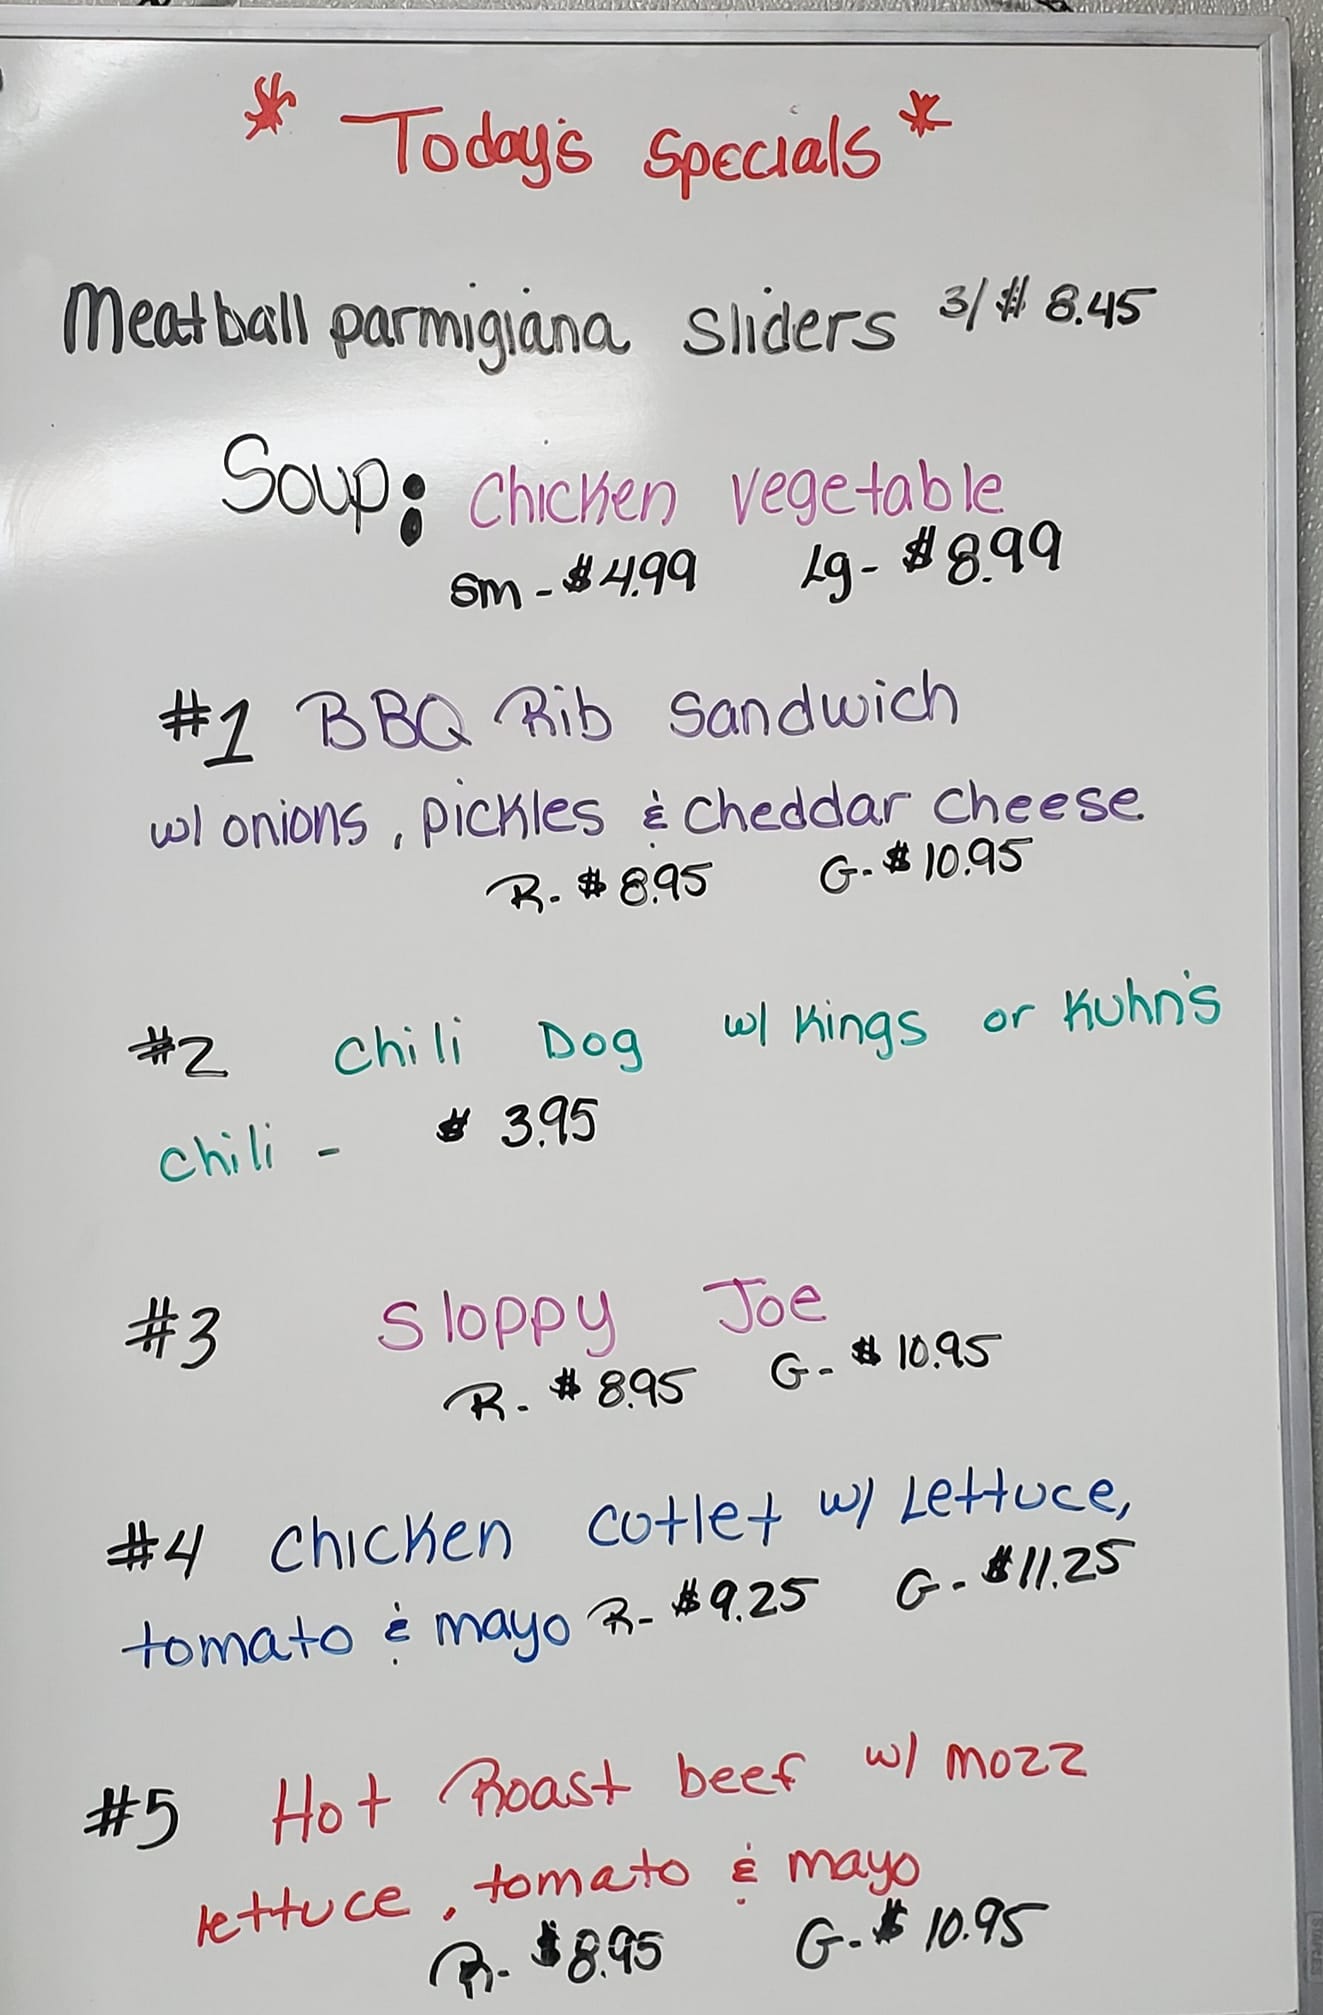 * Today's Specials *
Meatball parmigiana sliders 3/$ 8.45
Soup: Chicken vegetable
sm - $4.99 Lg - $8.99
#1 BBQ Rib Sandwich
w/ onions, pickles & cheddar cheese
R. $8.95 G. $10.95
#2 Chili Dog w/ Kings or Kuhn's
chili - $ 3.95
#3 Sloppy Joe
R. $8.95 G. $10.95
#4 Chicken cutlet w/ Lettuce,
tomato & mayo R- $9.25 G- $11.25
#5 Hot Roast beef w/ mozz
lettuce, tomato & mayo
R- $8.95 G- $10.95